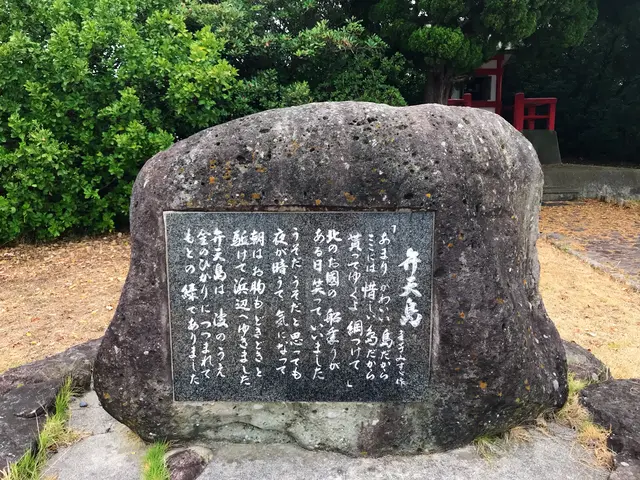 弁天島
金子みすゞ作
「あまりかわいい島だから
ここには惜しい島だから
貰ってゆくよ 綱つけて」
北のお國の船乗りが
ある日笑っていいました
うそだうそだと思っても
夜が暗うて、気になって
朝はお胸もどきどきと
駈けて浜辺へゆきました
弁天島は 波のうえ
金のひかりにつつまれて
もとの緑でありました